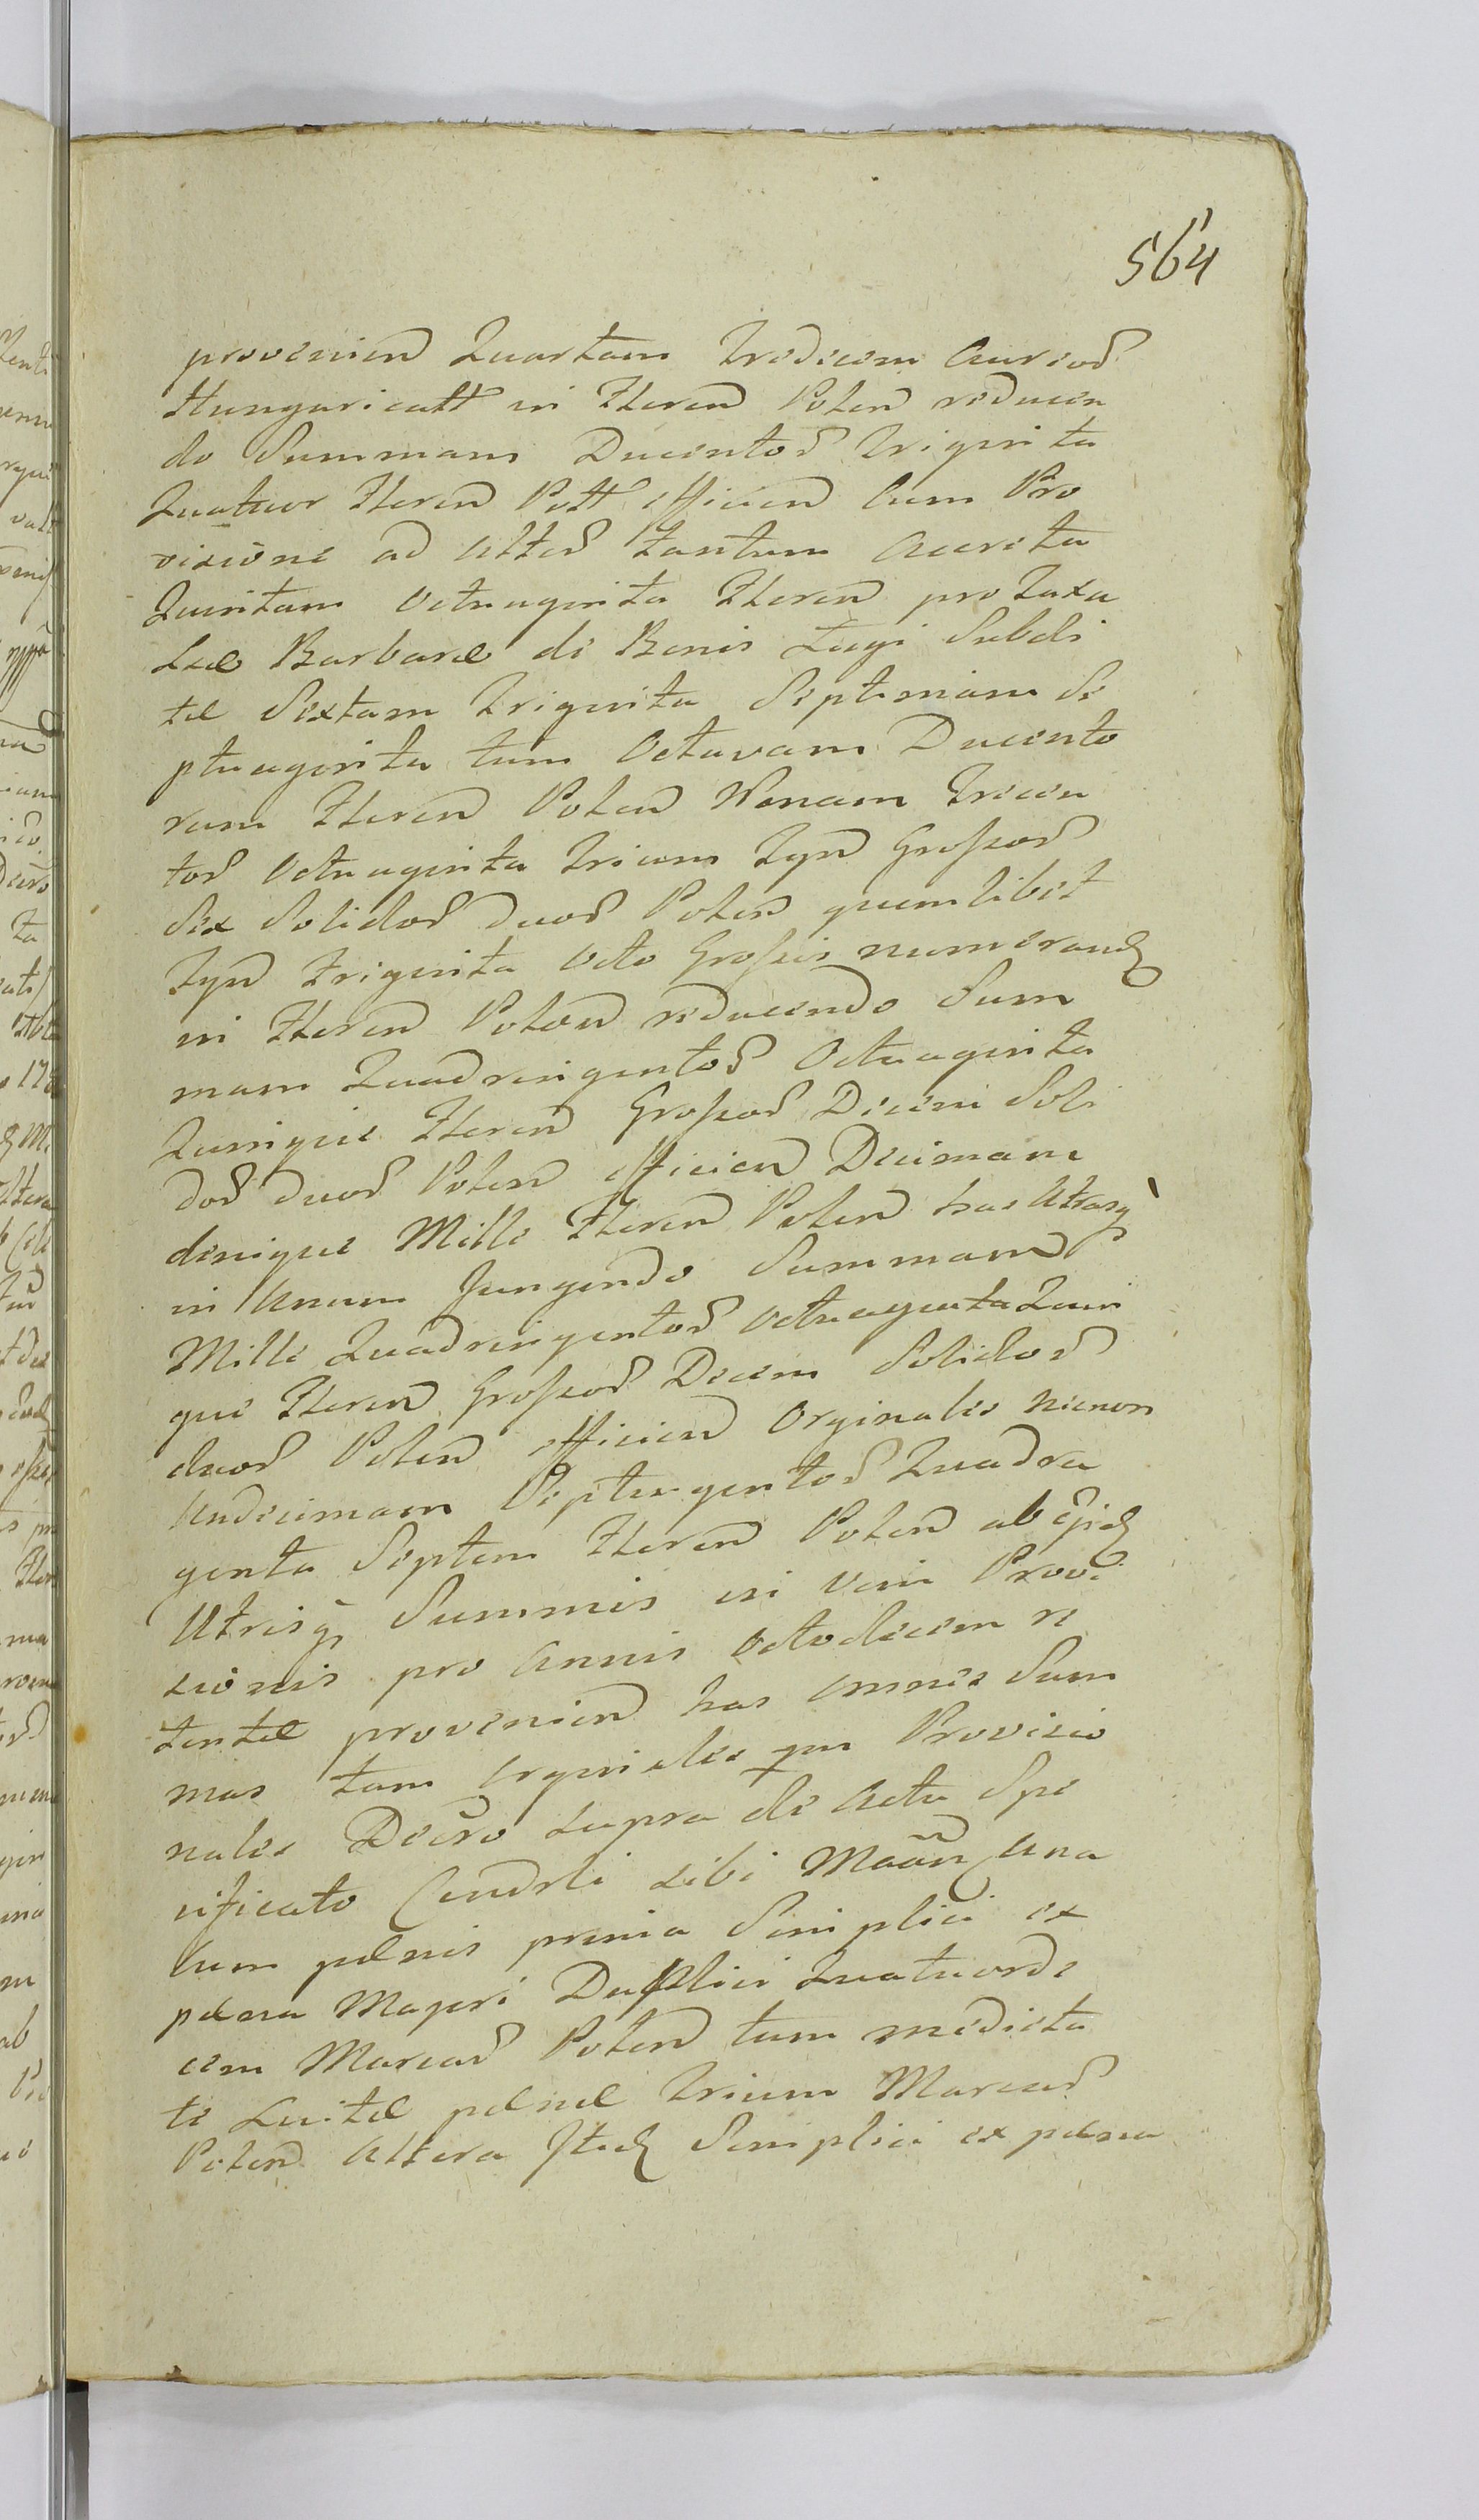 564
provenien Quartam Tredecem Aureos
Hungaricall in Floren Polon reducen
do Summam Ducentos Triginta
Quatuor Floren Poll efficien Cum Pro
visione ad Alter tantum Accreta
Quintam Octuaginta Floren pro Taxa
Lae Barbarae de Bonis Ługi Subdi
tae Sextam Triginta Septimam Se
ptuaginta tum Octavam Ducento
rum Floren Polon Nonam Trecen
tos Octuaginta Trium Tyn Grossos
Sex Solidos duos Polon quemlibet
Tyn triginta Octo Grossis numerand
in Floren Polon reducendo Sum
mam Quadringentos Octuaginta
Quinque Floren Grossos Decem Soli
dos duos Polon efficien Decimam
denique Mille Floren Polon has Utrasq
in Unum Jungendo Summam
Mille Quadringentos Octuaginta Quin
que Floren Grossos Decem Solidos
duos Polon efficien Orginales necnon
Undecimam Septingentos Quadra
ginta Septem Floren Polon ab ejsd
Utrisq Summis in Vim Provi
sionis pro Annis Octodecem re
tentae provenien has omnes Sum
mas tam Orginales qm Provisio
nales Decro supra de Actu Spe
cificato Condrli sibi Maan Una
Cum paenis prima Simplici ex
paena Mageri Duplici Quatuorde
cem Marcas Polon tum medieta
te Luitae paenae Trium Marcas
Polon Altera Itd Simplici ex paena